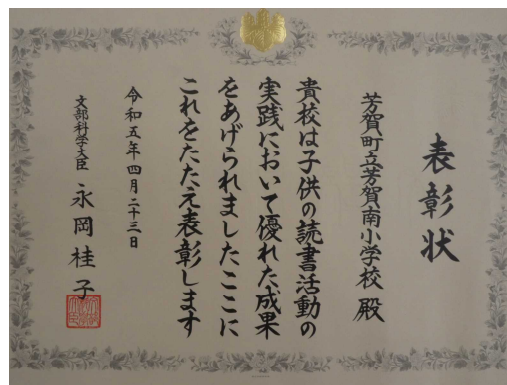 表彰状
芳賀町立芳賀南小学校 殿
貴校は子供の読書活動の
実践において優れた成果
をあげられましたここに
これをたたえ表彰します
令和五年四月二十三日
文部科学大臣 永岡桂子